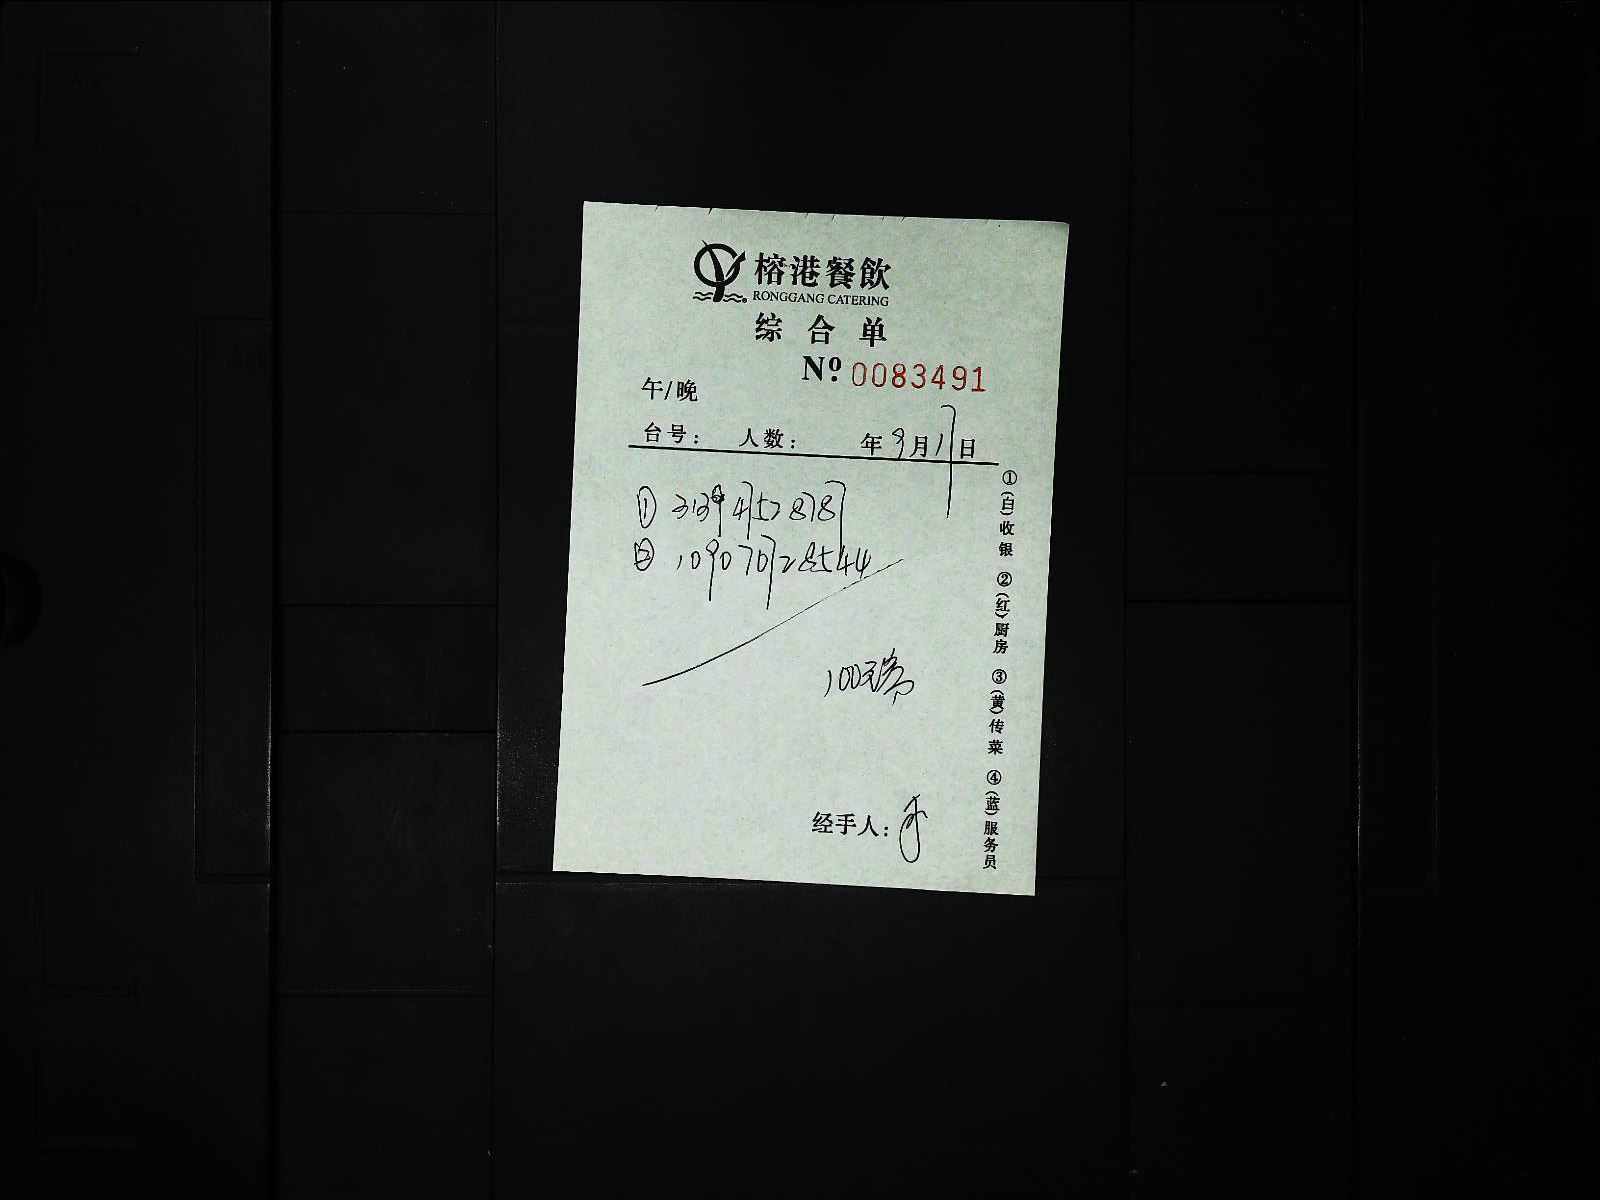 榕港餐飲
RONGGANG CATERING
综合单
Nº 0083491
午/晚
台号： 人数： 年9月17日
②109070728544
100元
经手人：
①(白)收银 ②(红)厨房 ③(黄)传菜 ④(蓝)服务员